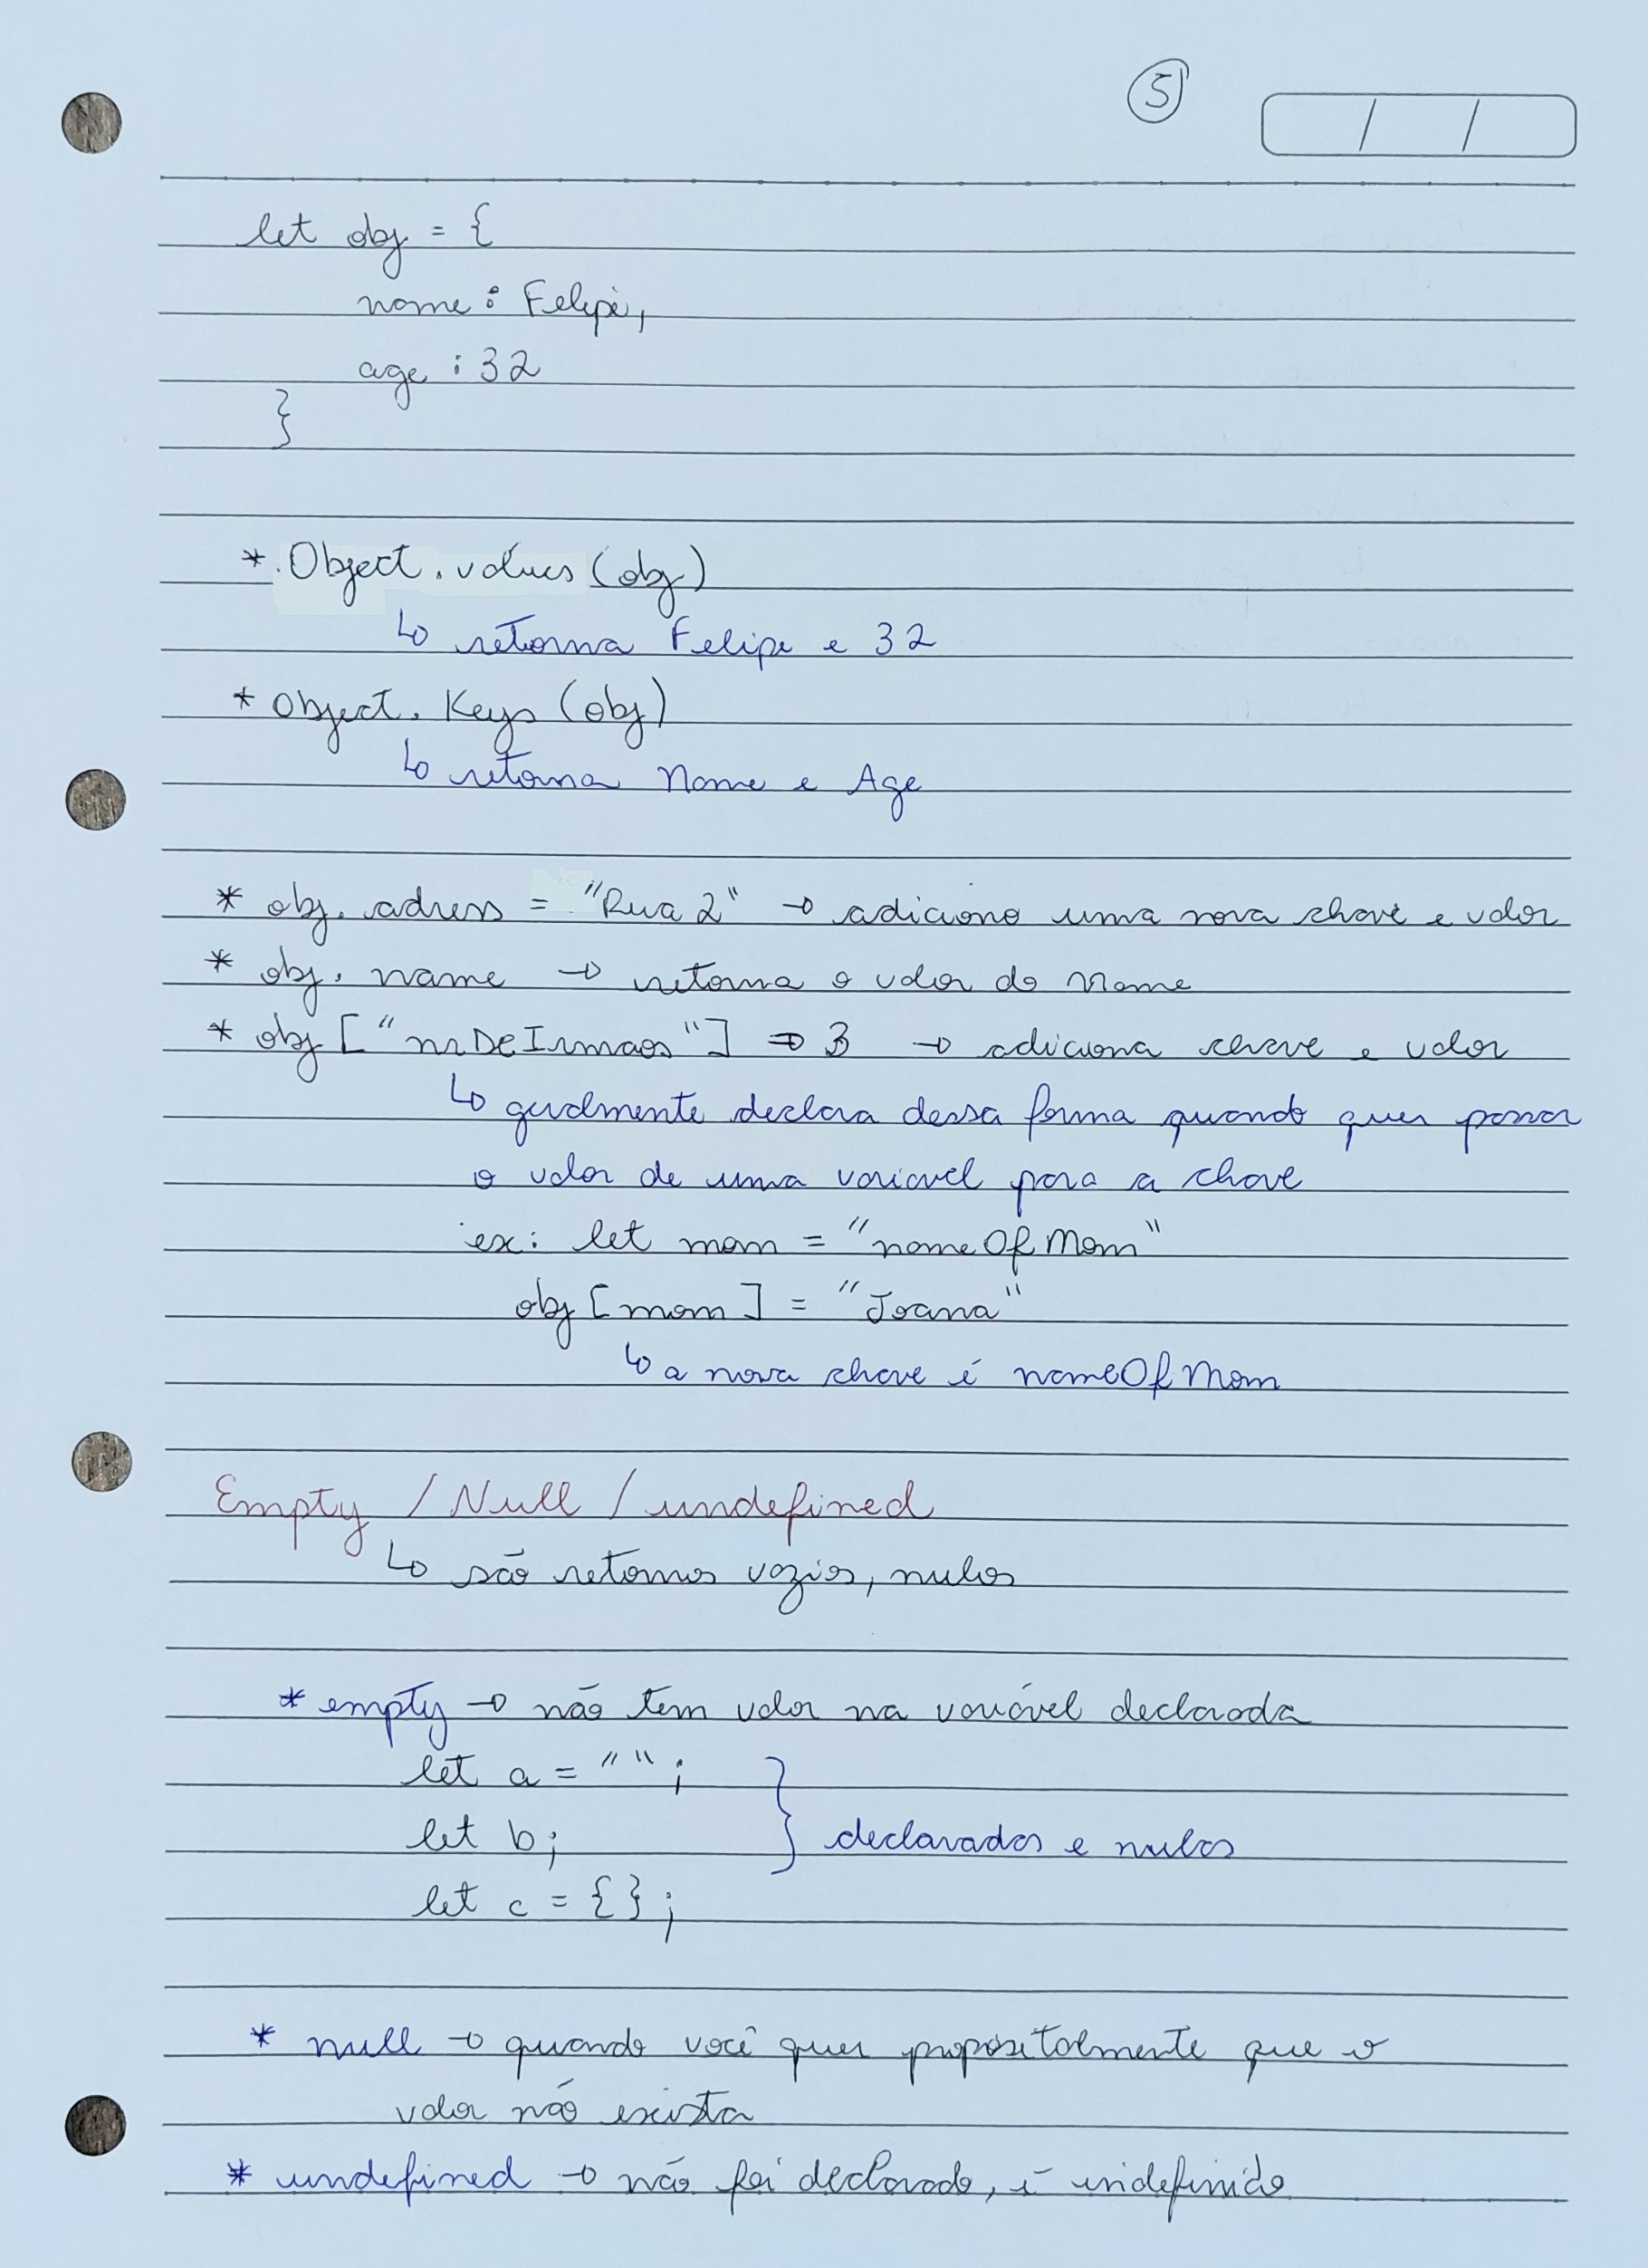 5
/ /
let obj = {
nome: Felipe,
age: 32
}
*. Object.values (obj)
↳ retorna Felipe e 32
* Object. Keys (obj)
↳ retorna Nome e Age
* obj. adress = "Rua 2" → adiciono uma nova chave e valor
* obj. name → retorna o valor do Nome
* obj ["nrDeIrmaos"] => 3 → adiciona chave e valor
↳ geralmente declara dessa forma quando quer passar
o valor de uma variavel para a chave
ex: let mom = "nomeOfMom"
obj [mom] = "Joana"
↳ a nova chave é nomeOfMom
Empty / Null / undefined
↳ são retornos vazios, nulos
* empty → não tem valor na variável declarada
let a = " ";
let b; } declarados e nulos
let c = { };
* null → quando você quer propositalmente que o
valor não exista
* undefined → não foi declarado, é indefinido